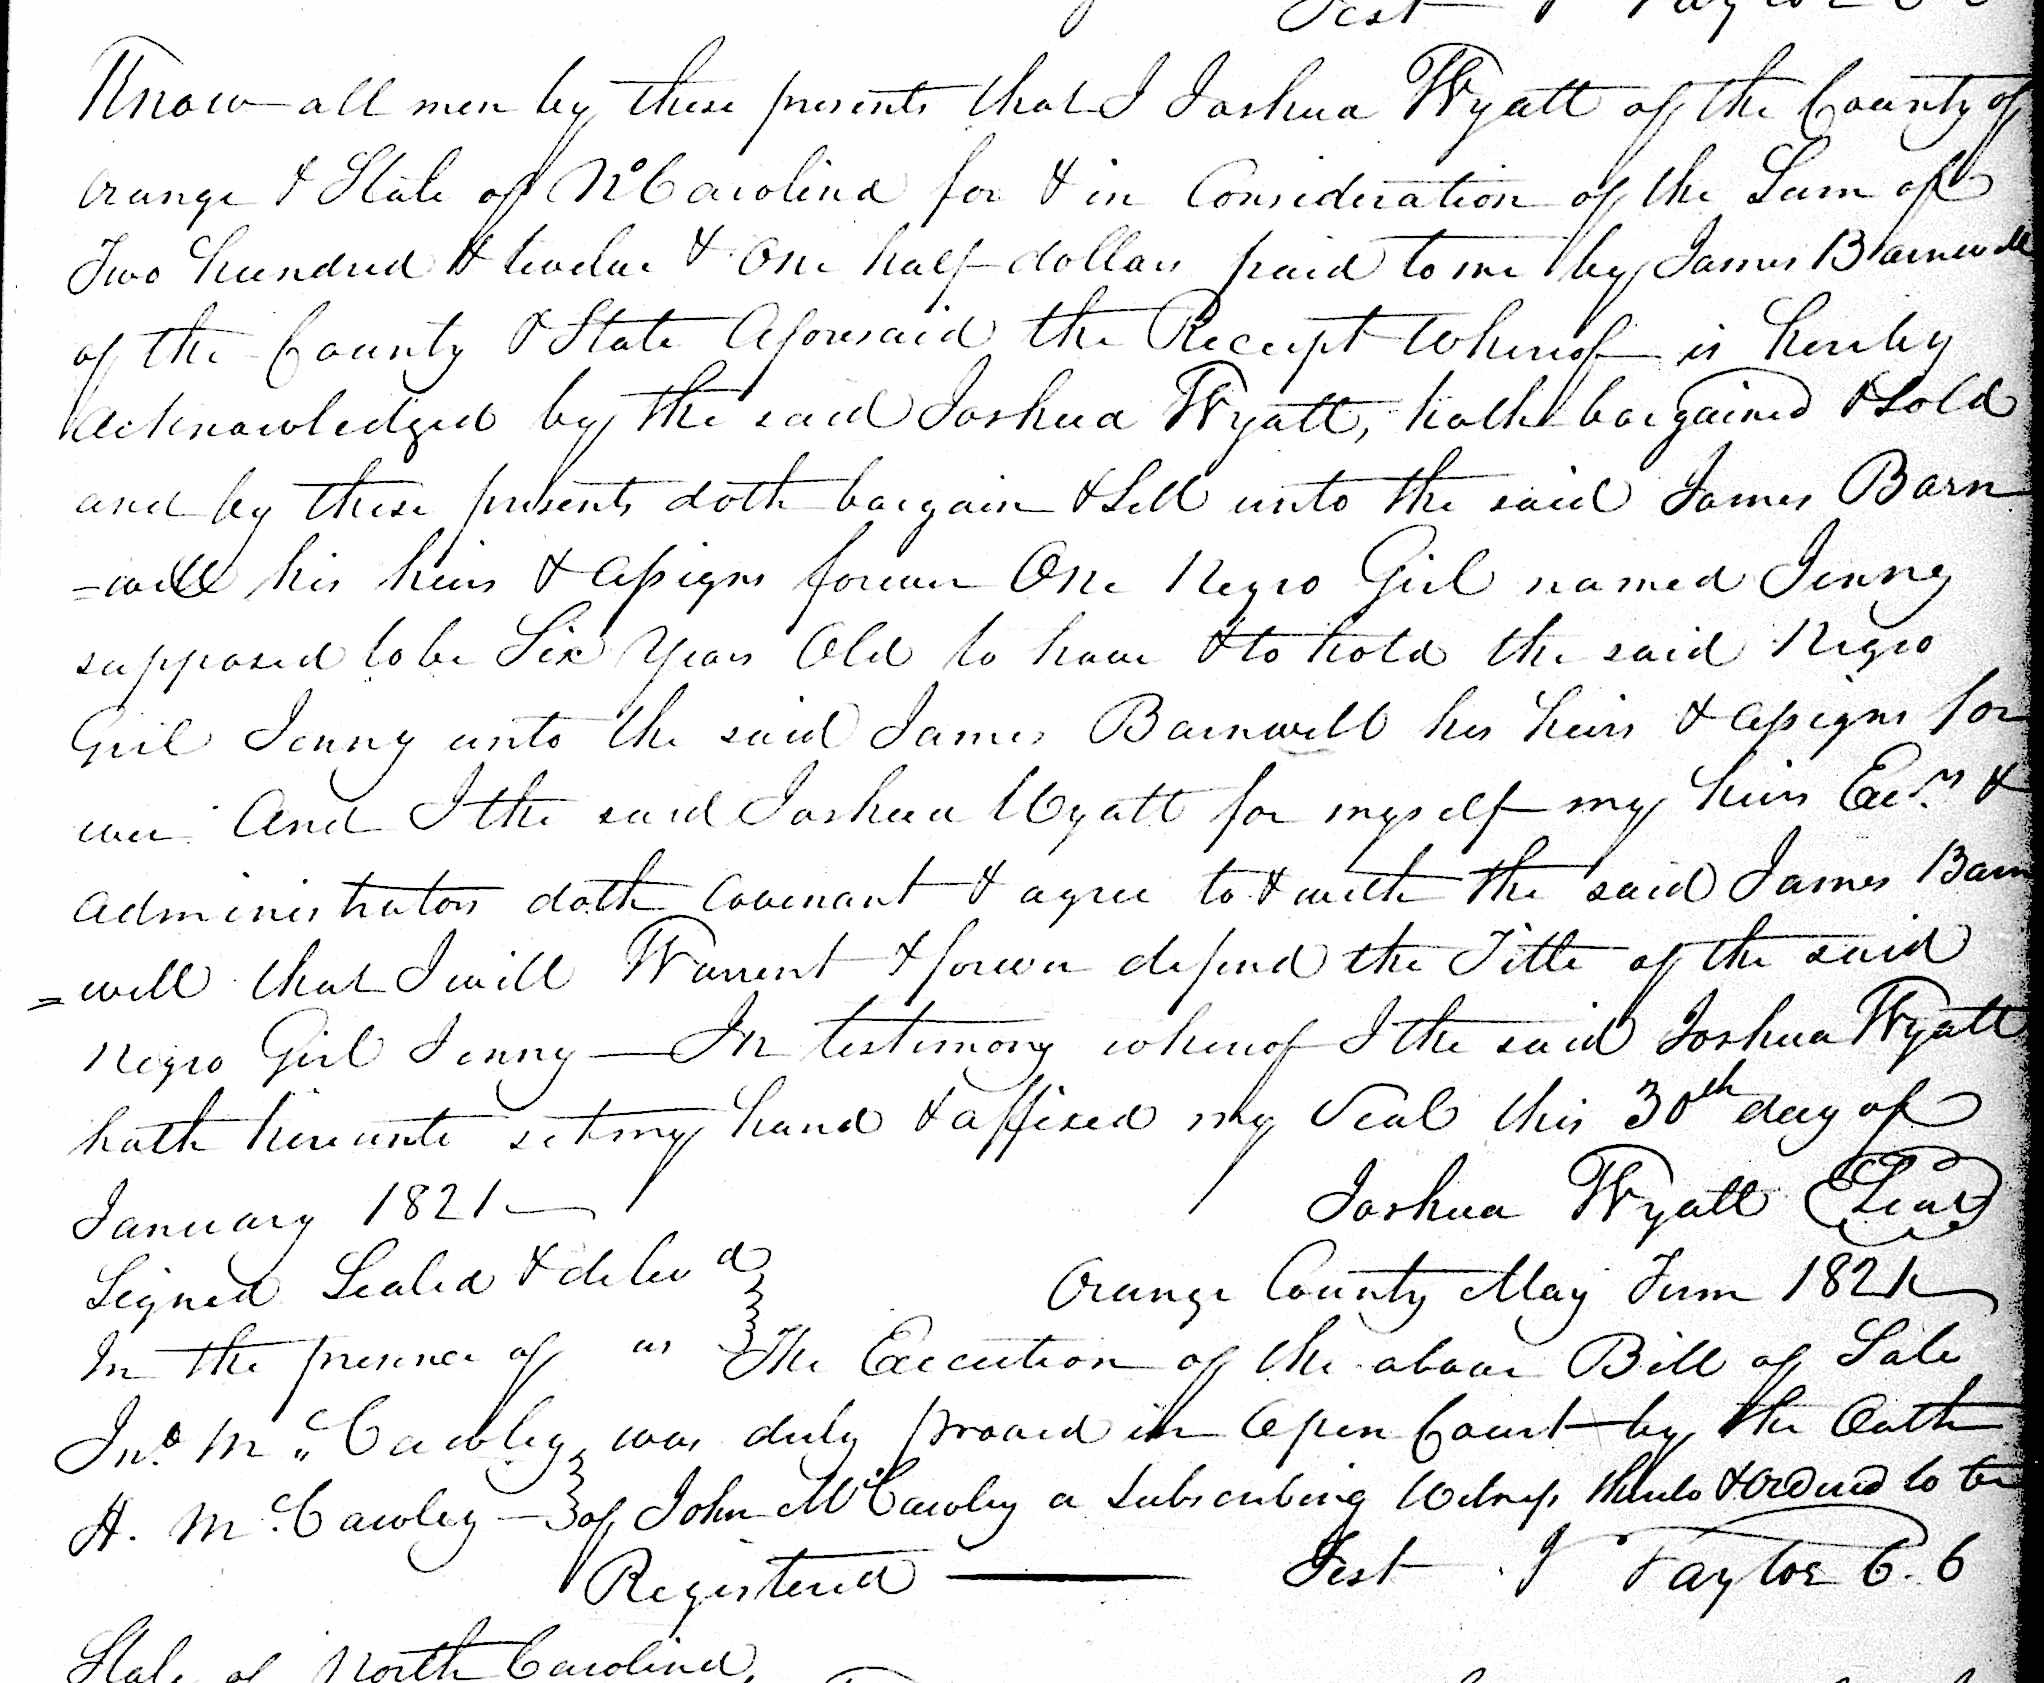 Test J Taylor C C
Know all men by these presents that I Joshua Wyatt of the County of
Orange & State of No Carolina for & in Consideration of the Sum of
Two hundred & twelve & One half dollars paid to me by James Barnwell
of the County & State Aforesaid the Receipt Whereof is hereby
Acknowledged by the said Joshua Wyatt, hath bargained & Sold
and by these presents doth bargain & Sell unto the said James Barn
=well his heirs & Assigns forever One Negro Girl named Jenny
supposed to be Six Years Old to have & to hold the said Negro
Girl Jenny unto the said James Barnwell his heirs & assigns for
ever And I the said Joshua Wyatt for myself my heirs Exrs &
Administrators doth Covenant & agree to & with the said James Barn
=well that I will Warrent & forever defend the Title of the said
Negro Girl Jenny — In testimony whereof I the said Joshua Wyatt
hath hereunto set my hand & affixed my Seal this 30th day of
January 1821 Joshua Wyatt (Seal)
Signed Sealed & delivd Orange County May Term 1821
In the presence of us The Execution of the above Bill of Sale
Jno. McCawley was duly proved in Open Court by the Oath
A. McCawley — of John McCawley a subscribing Witness thereto & Ordered to be
Registered — Test J Taylor C. C
State of North Carolina